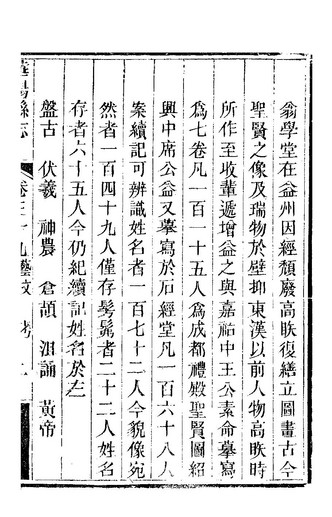 翁學堂在益州因經頹廢高眹復繕立圖畫古今
聖賢之像及瑞物於壁抑東漢以前人物高眹時
所作至收輩遞增益之與嘉祐中王公素命摹寫
爲七卷凡一百一十五人爲成都禮殿聖賢圖紹
興中席公益又摹寫於石經堂凡一百六十八人
案續記可辨識姓名者一百七十二人今貌像宛
然者一百四十九人僅存髣髴者二十二人姓名
存者六十五人今仍紀續記姓名於左
盤古 伏羲 神農 倉頡 沮誦 黃帝
華陽縣志 卷三十九藝文